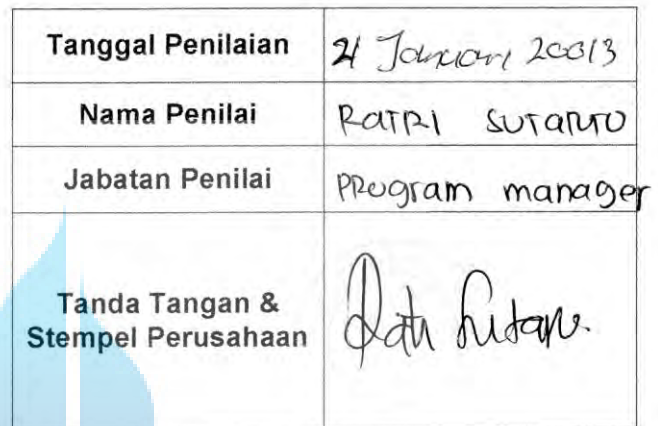 Tanggal Penilaian 21 Januari 20013
Nama Penilai RATRI SUTANTO
Jabatan Penilai PROgram manager
Tanda Tangan &
Stempel Perusahaan